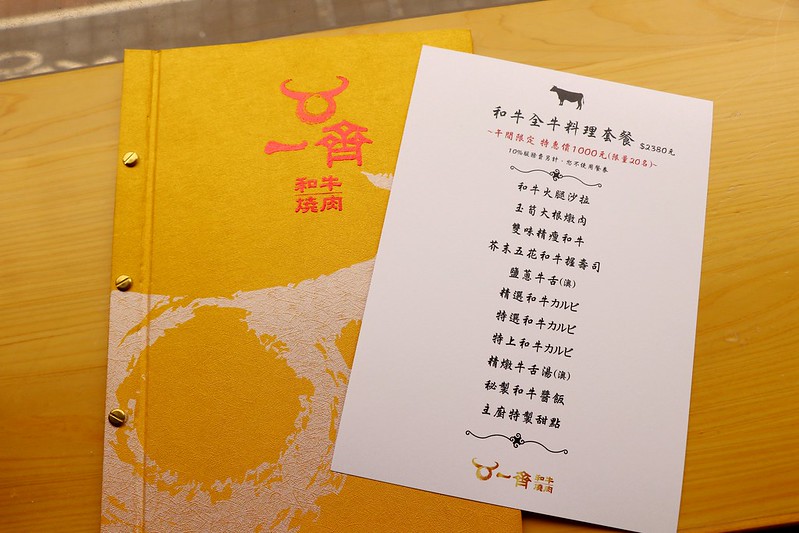 一齊
和牛
燒肉
和牛全牛料理套餐 $2380元
~午間限定 特惠價1000元(限量20名)~
10%服務費另計，恕不使用餐券
和牛火腿沙拉
玉筍大根燉肉
雙味精瘦和牛
芥末五花和牛握壽司
鹽蔥牛舌(澳)
精選和牛カルビ
特選和牛カルビ
特上和牛カルビ
精燉牛舌湯(澳)
秘製和牛醬飯
主廚特製甜點
一齊 和牛
燒肉